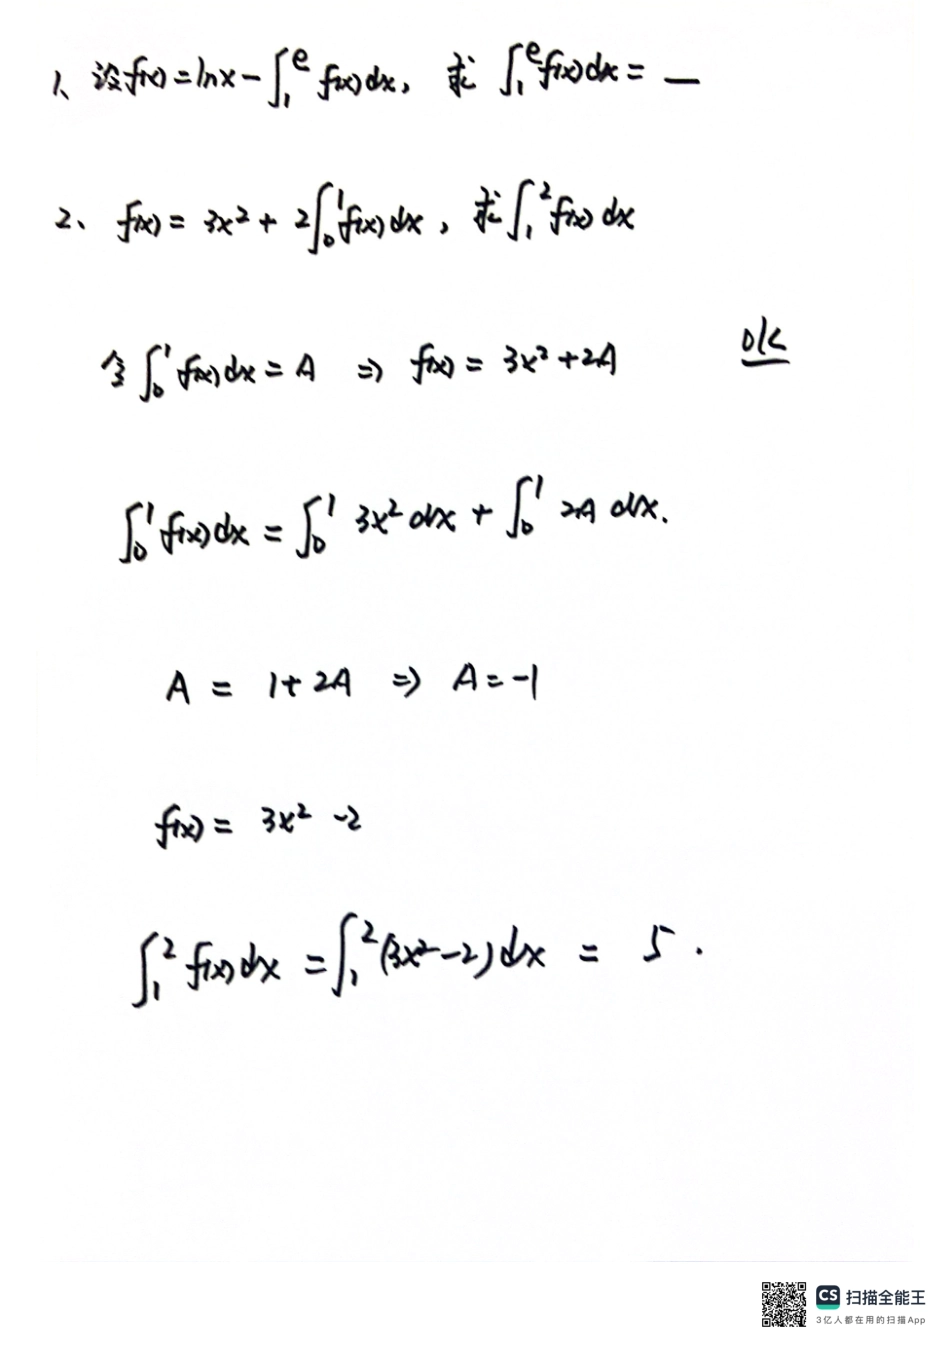 1、设f(x)=lnx-∫₁ᵉ f(x)dx, 求 ∫₁ᵉf(x)dx = —
2、 f(x) = 3x²+ 2∫₀¹f(x)dx, 求∫₁²f(x)dx
令∫₀¹f(x)dx = A ⇒ f(x) = 3x²+2A
ok
∫₀¹f(x)dx = ∫₀¹ 3x²dx + ∫₀¹ 2A dx.
A = 1+2A ⇒ A=-1
f(x) = 3x² -2
∫₁²f(x)dx = ∫₁²(3x²-2)dx = 5.
CS 扫描全能王
3亿人都在用的扫描App